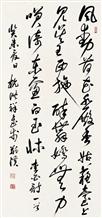 風動荷花水殿香姑蘇臺上
見吳王西施醉舞嬌無力
笑倚東窗白玉床李白詩一首